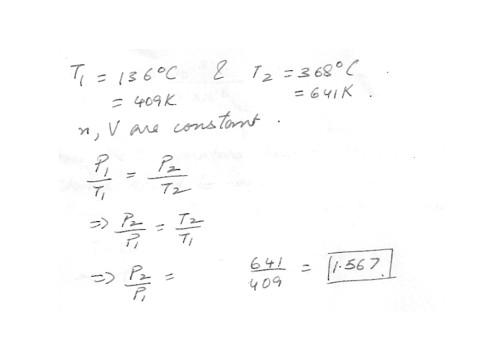 T₁ = 136°C & T₂ = 368°C.
= 409K = 641K.
n, V are constant.
P₁/T₁ = P₂/T₂
=> P₂/P₁ = T₂/T₁
=> P₂/P₁ = 641/409 = 1.567